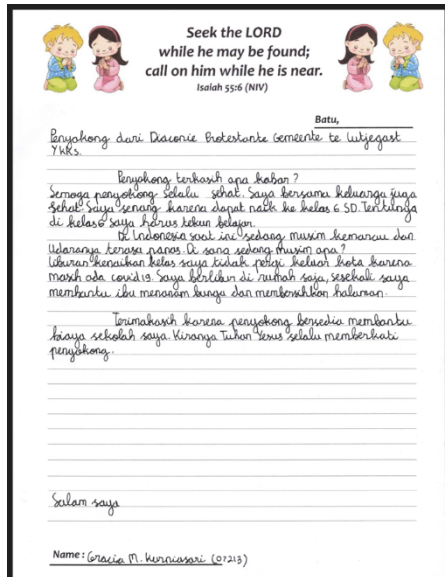 Seek the LORD
while he may be found;
call on him while he is near.
Isaiah 55:6 (NIV)
Batu,
Penyokong dari Diaconie Protestante Gemeente te Lutjegast
YKKS.
Penyokong terkasih apa kabar?
Semoga penyokong selalu sehat. Saya bersama keluarga juga
sehat. Saya senang karena dapat naik ke kelas 6 SD. Tentunya
di kelas 6 saya harus tekun belajar.
Di Indonesia saat ini sedang musim kemarau dan
Udaranya terasa panas. Di sana sedang musim apa?
Liburan kenaikan kelas saya tidak pergi keluar kota karena
masih ada covid 19. Saya berlibur di rumah saja, sesekali saya
membantu ibu menanam bunga dan membersihkan halaman.
Terimakasih karena penyokong bersedia membantu
biaya sekolah saya. Kiranya Tuhan Yesus selalu memberkati
penyokong.
Salam saya
Name: Gracia M. Kurniasari (07213)